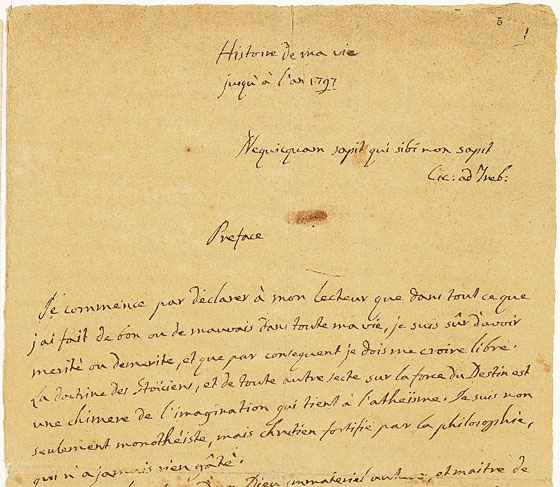 5
1
Histoire de ma vie
jusqu'à l'an 1797
Nequicquam sapit qui sibi non sapit
Cic: ad Treb:
Preface
Je commence par déclarer à mon lecteur que dans tout ce que
j'ai fait de bon ou de mauvais dans toute ma vie, je suis sûr d'avoir
merité ou demerité, et que par consequent je dois me croire libre.
La doctrine des Stoïciens, et de toute autre secte sur la force du Destin est
une chimere de l'imagination qui tient à l'atheïsme. Je suis non
seulement monothéiste, mais chretien fortifié par la philosophie,
qui n'a jamais rien gâté.
Dieu immateriel auteur, et maitre de